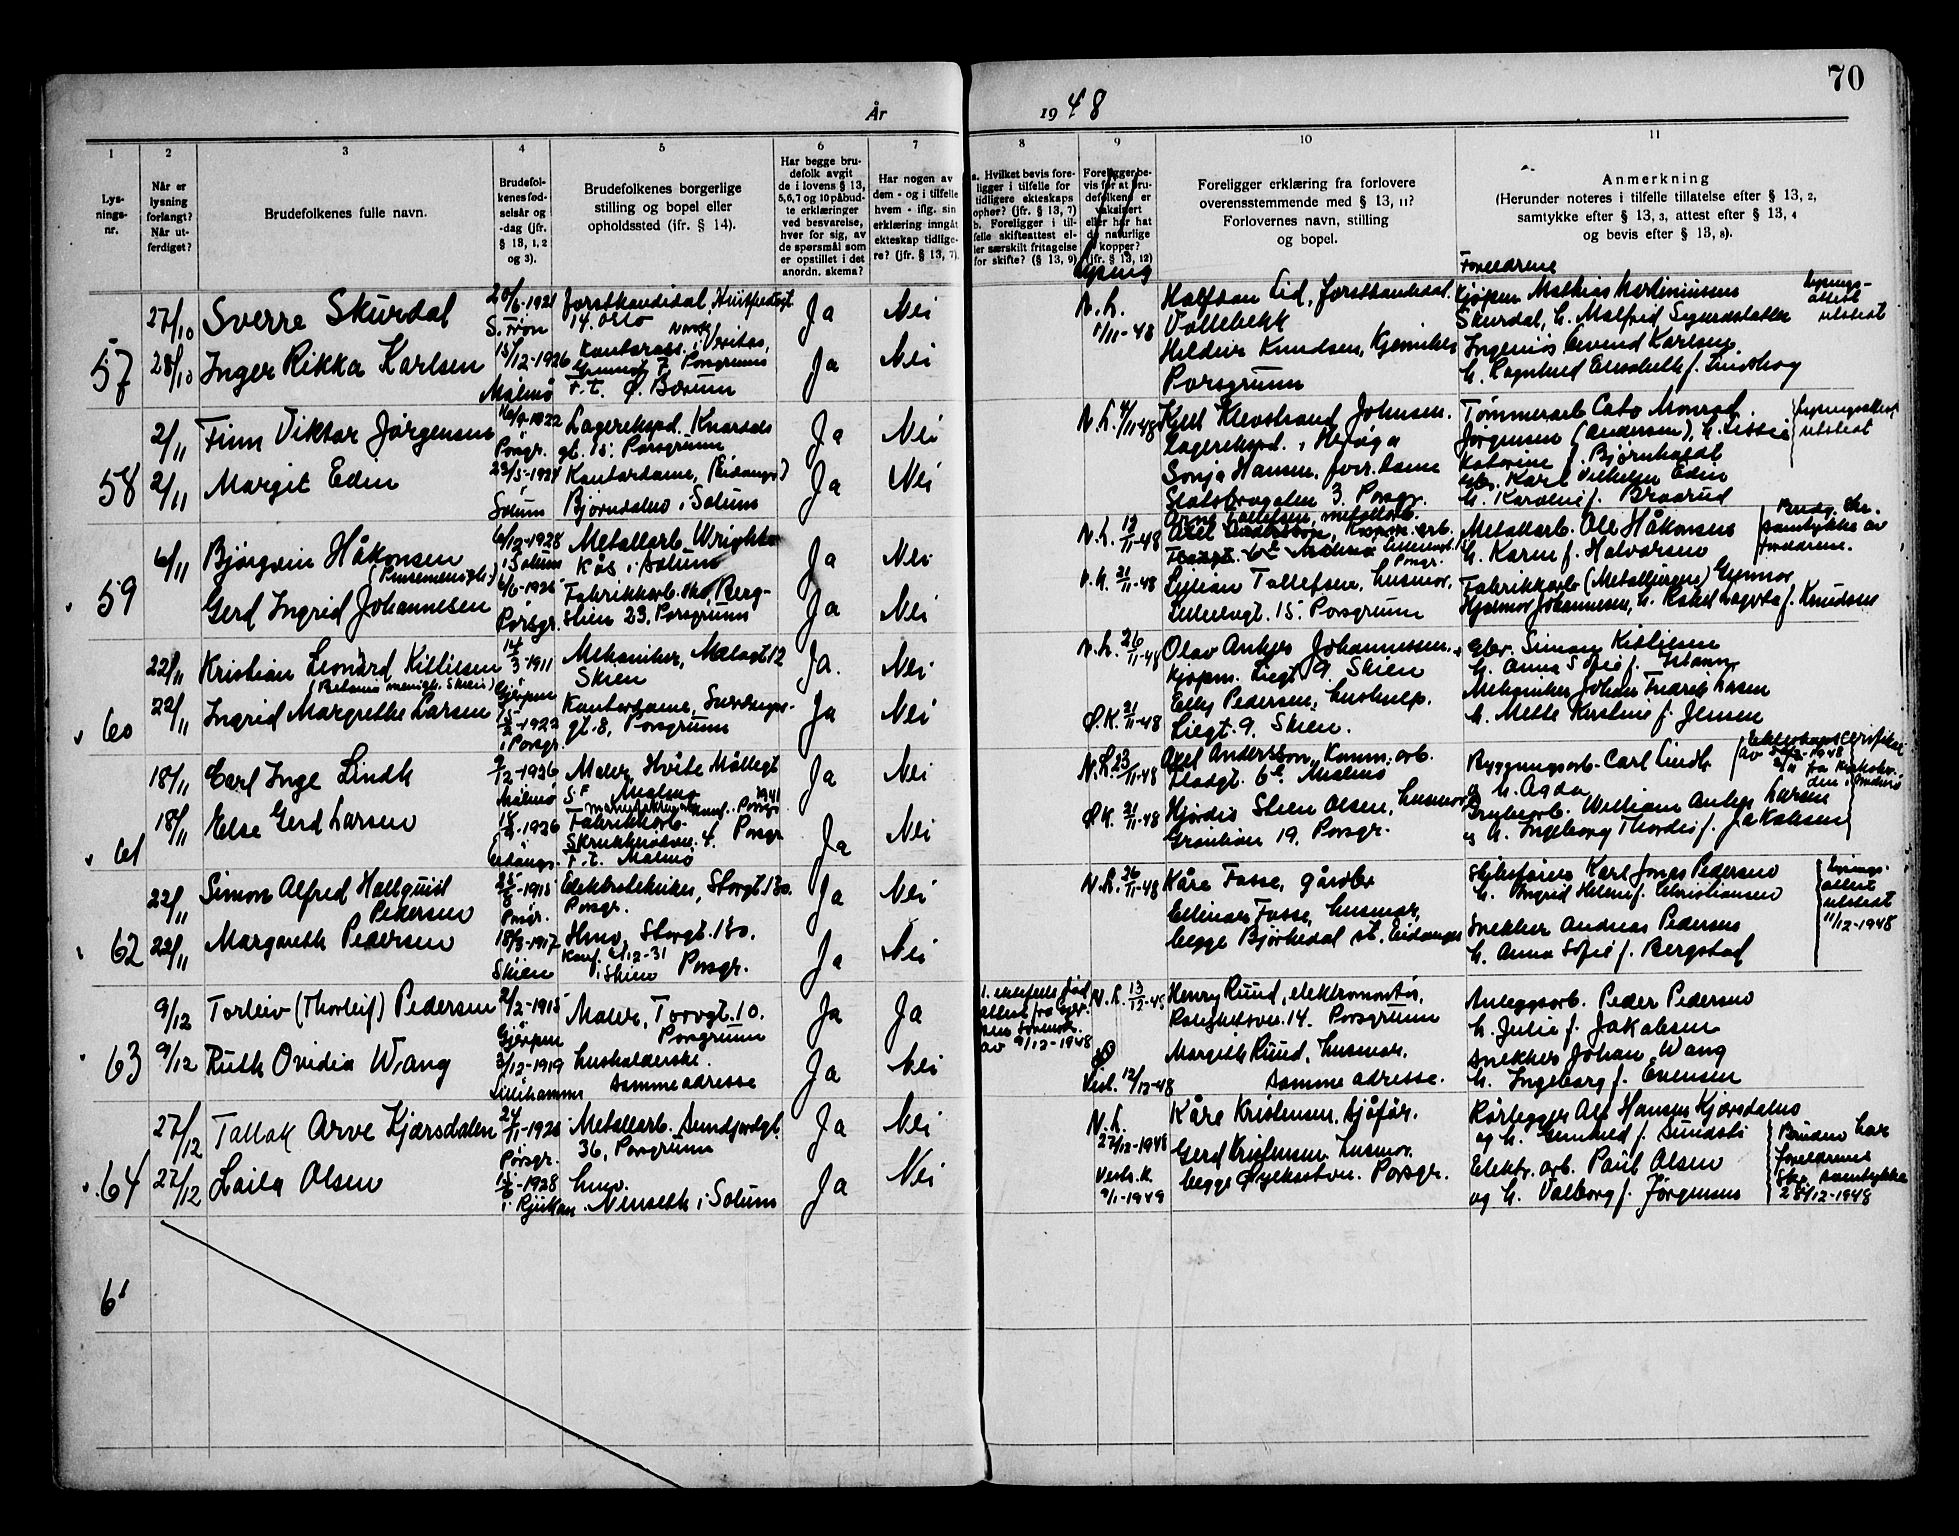 70
År
1948
1
2
3
4
5
6
7
8
9
10
11
Lys-
nings-
nr.
Når er
lysning
forlangt?
Når ut-
ferdiget?
Brudefolkenes fulle navn.
Brudefol-
kenes fød-
selsår og
-dag (jfr.
§ 13, 1, 2
og 3).
Brudefolkenes borgerlige
stilling og bopel eller
opholdssted (ifr. § 14).
Har begge bru-
defolk avgit
de i lovens § 13,
5,6,7 og 10 påbud-
te erklæringer
ved besvarelse,
hver for sig, av
de spørsmål som
er opstillet i det
anordn. skema?
Har nogen av
dem - og i tilfelle
hvem - iflg. sin
erklæring inngåt
ekteskap tidlige-
re? (jfr. § 13, 7).
a. Hvilket bevis fore-
ligger i tilfelle for
tidligere ekteskaps
ophør? (jfr. § 13, 7)
b. Foreligger i til-
felle skifteattest el-
ler særskilt fritagelse
for skifte? (§ 13, 9)
Foreligger be-
vis for at bru-
defolkene er
vaksinert
eller har hat
de naturlige
kopper?
(jfr. § 13, 12)
Lysing
Foreligger erklæring fra forlovere
overensstemmende med § 13, 11?
Forlovernes navn, stilling
og bopel.
Anmerkning
(Herunder noteres i tilfelle tillatelse efter § 13, 2,
samtykke efter § 13, 3, attest efter § 13, 4
og bevis efter § 13, 8).
Foreldrene
57
27/10 Sverre Skurdal
20/6-1921
S. Fron
Forstkandidat, Huitfeldtsgt
14. Oslo
Ja
Nei
N.L.
11/11-48
Halfdan Lid, Forstkandidat.
Vollebekk
Kjøpm Mathias Martiniussen
Skurdal,
Lysings-
attest
utstedt
28/10 Inger Rikka Karlsen
15/12-1926
Malmö
Norsk Veritas,
F.t. Ø. Bærum
Ja
Nei
Knudsen,
Porsgrunn
Ingeniør Eivind Karlsen
H. Ragnhild Elisabeth f. Lindberg
58
2/11 Finn Viktor Jørgensen
1922
Porsgr.
Lagereksped. Knardals
gt. 15. Porsgrunn
Ja
Nei
N.L. 4/11-48
Kjell Klevstrand Johnsen.
Lagereksped. i Herøya
Tømmerarb Cato Monrad
Jørgensen (Andersen), H. Lissie
Katarine f. Bjørnholdt
Lysingsattest
utstedt
2/11 Margit Edin
23/5-1924
Solum
Kontordame, (Eidanger)
Bjørndalen i Solum
Ja
Nei
Sonja Hansen, forr. dame
Slottsbrogaten 3. Porsgr.
Karl Vilhelm Edin
H. Karoline f. Braarud
59
6/11 Bjørgvin Håkonsen
(Pinsemenigh.)
6/12-1928
i Solum
Metallarb. Wrights
Kås i Solum
Ja
Nei
N.L. 12/11-48
Arne Tallefsen, metallarb.
Metallarb. Ole Håkonsen
H. Karen f. Halvorsen
Brudg. har
samtykke av
foreldrene.
Gerd Ingrid Johannesen
6/6-1925
Porsgr.
Fabrikkarb. Berg-
slien 23. Porsgrunn
Ja
Nei
21/11-48
Lylian Tallefsen, husmor,
Lilleelvgt. 15. Porsgrunn
Fabrikkarb (Metallurgene) Gunnar
Hjalmar Johannesen, H. Rakel Lagerta f. Knudsen
60
22/11 Kristian Leonard Kittilsen
(Betania menigh. Skien)
14/3-1911
Gjerpen
Mekaniker, Mælagt 12
Skien
Ja.
Nei
N.L. 26/11-48
Olav Anker Johannessen,
Kjøpm. Liegt 9 Skien
Gbr. Simon Kittilsen
H. Anna Sofie f.
22/11 Ingrid Margrethe Larsen
1922
i Porsgr.
Kontordame,
gt. 8, Porsgrunn
Ja
Nei
Ø.K. 21/11-48
Elly Pedersen, hushjelp.
Liegt. 9. Skien.
Mekaniker Johan Fredrik Larsen
H. Mette Kirstine f. Jensen
61
18/11 Carl Inge Lindh
1926
Malmö
Maler, Hvite Møllegt
5 F Malmö
Ja
Nei
N.L. 23/11-48
Axel Andersson, Komm. arb.
Stadgt. 6 Malmö
Bygningsarb. Carl Lindh
og H. Agda
18/11 Else Gerd Larsen
1926
Eidanger
Fabrikkarb.
4. Porsgr
F.t. Malmö
Ja
Nei
Ø.K. 21/11-48
Hjørdis Steen Olsen, husmor
Grønlien 19. Porsgr.
William Anker Larsen
og H. Ingeborg Thordis f. Jakobsen
62
22/11 Simon Alfred Hallquist
Pedersen
25/8-1915
Porsgr.
Elektrotekniker, Storgt. 130.
Porsgr.
Ja
Nei
N.L. 26/11-48
Kåre Fosse, gårdbr
Skibsfører Karl Jonas Pedersen
H. Ingrid Helene f. Christiansen
attest
utstedt
11/12-1948
22/11 Margareth Pedersen
18/3-1917
Skien
Hmv, Storgt. 130.
Konf. 12-31
i Skien Porsgr.
Ja
Nei
Ellinor Fosse, husmor,
begge Bjørkedal st. Eidanger
Snekker Andreas Pedersen
H. Anna Sofie f. Bergstad
63
9/12 Torleiv (Thorleif) Pedersen
2/2-1915
Gjerpen
Maler, Torvgt. 10.
Porsgrunn
Ja
Ja
av 9/12-1948
N.L. 13/12-48
Henry Ruud, elektromontør,
14. Porsgrunn
Anleggsarb. Peder Pedersen
H. Julie f. Jakobsen
9/12 Ruth Ovidia Wang
3/12-1919
Lillehammer
husholderske.
samme adresse
Ja
Nei
Vestl. 12/12-48
Margith Ruud, husmor,
samme adresse.
Snekker Johan Wang
H. Ingeborg f. Evensen
64
27/12 Tallak Arve Kjærsdalen
24/11-1926
Porsgr.
Metallarb. Sundjordgt.
36, Porsgrunn
Ja
Nei
N.L.
27/12-1948
Kåre Kristensen, sjåfør.
Rørlegger Alf Hansen Kjærsdalen
og H. Gunhild f. Sundsti
Bruden har
foreldrenes
skr. samtykke
28/12-1948
27/12 Laila Olsen
1928
i Rjukan
hmv.
Nenseth i Solum
Ja
Nei
Vestr. K.
9/1-1949
Gerd Kristensen, husmor.
begge Porsgr.
Elektr. arb. Paul Olsen
og H. Valborg f. Jørgensen
6